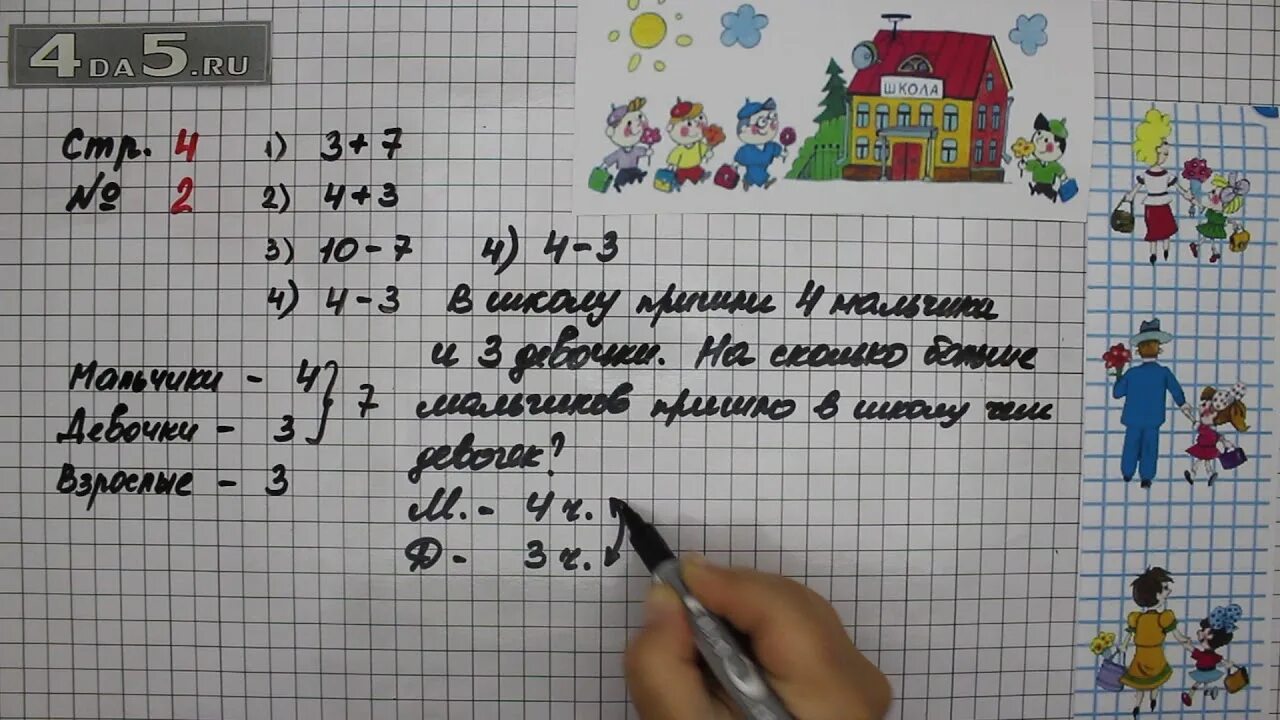 4DA5.RU
ШКОЛА
Стр. 4
№ 2
1) 3+7
2) 4+3
3) 10-7
4) 4-3
4) 4-3
В школу пришли 4 мальчика
и 3 девочки. На сколько больше
мальчиков пришло в школу чем
девочек?
Мальчики - 4
Девочки - 3
7
Взрослые - 3
М. - 4 ч.
Д - 3 ч.